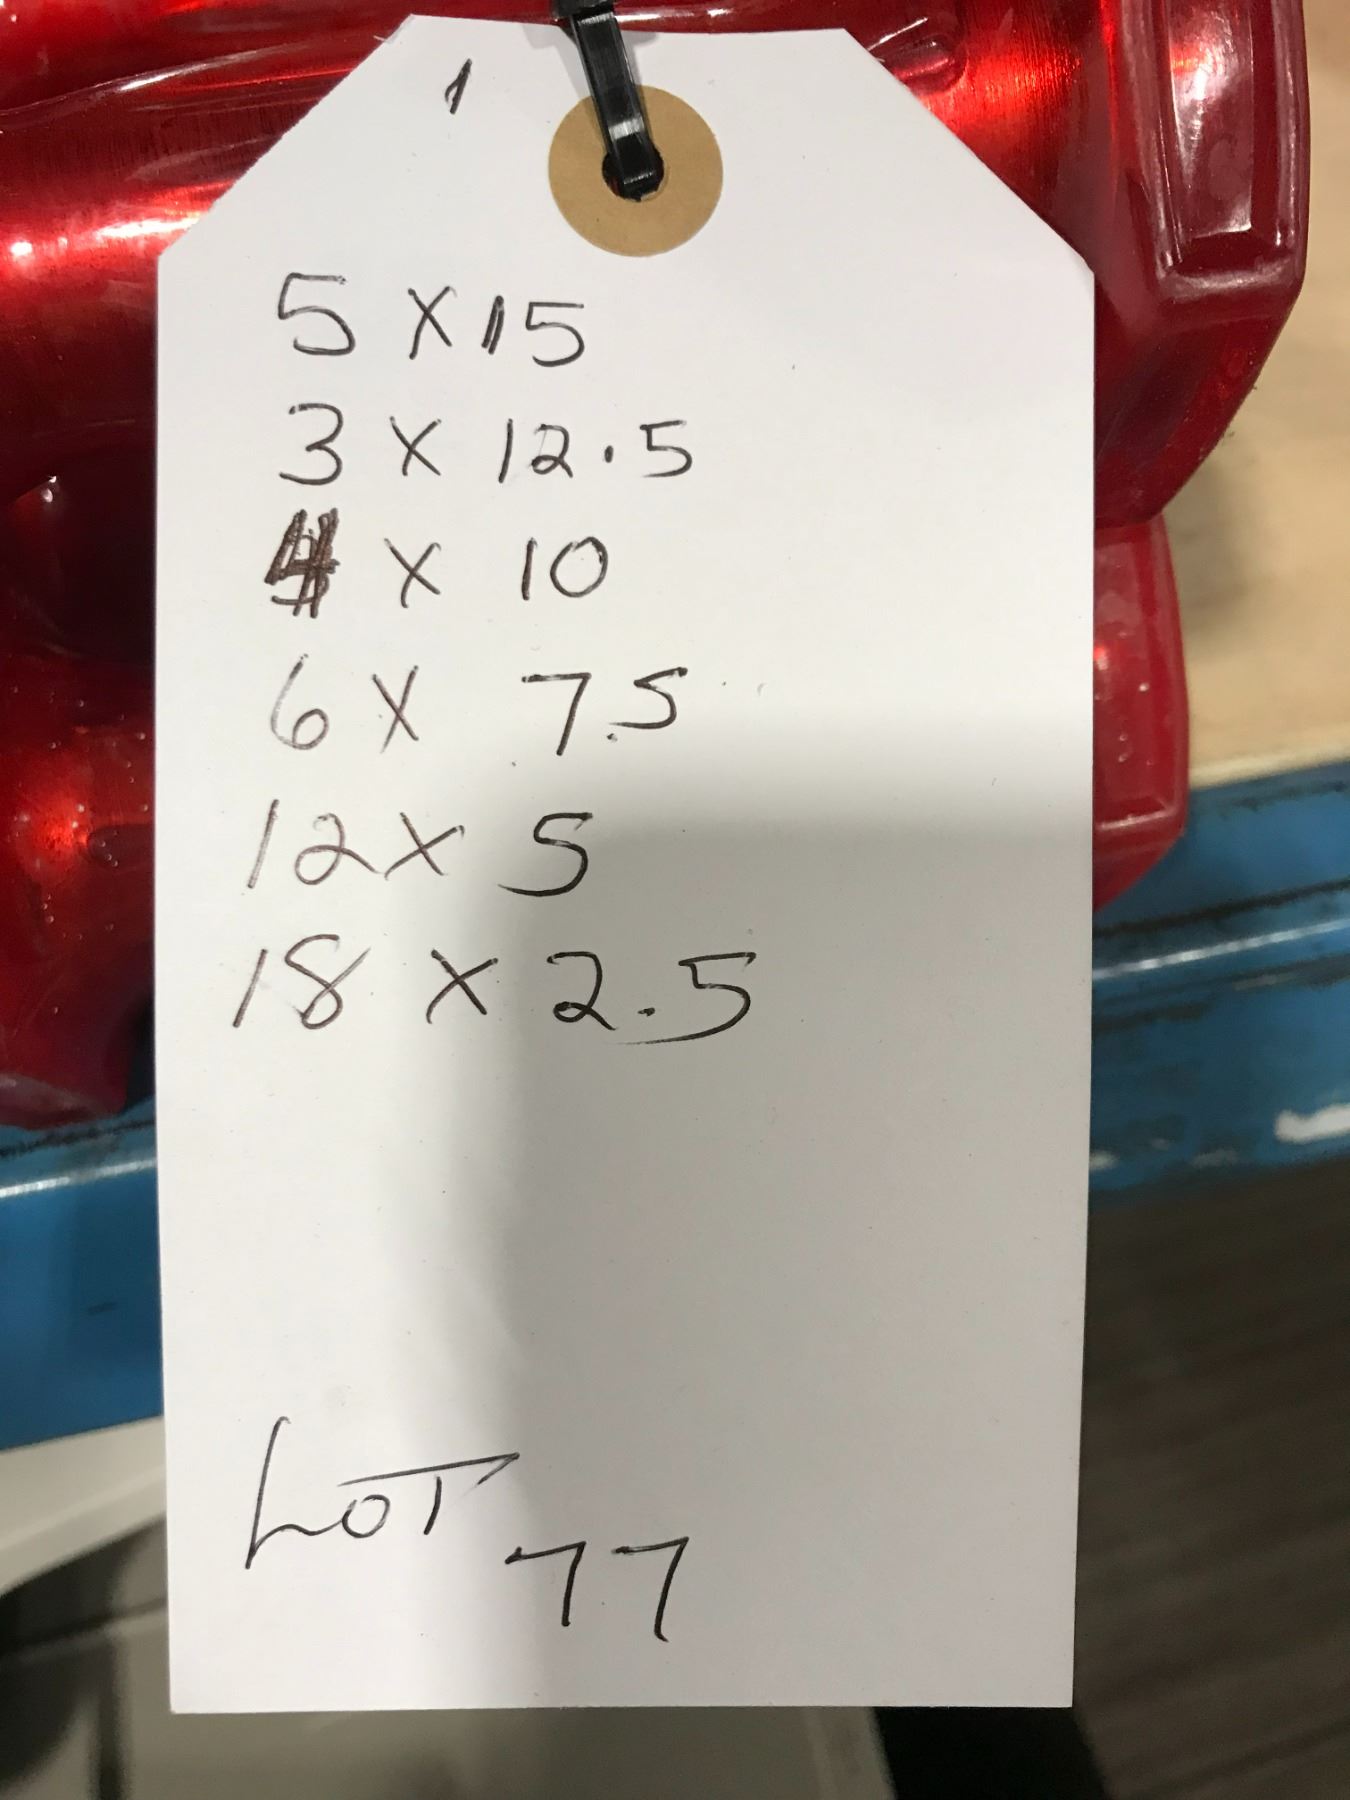 1
5 X 15
3 X 12.5
4 X 10
6 X 7.5
12 X 5
18 X 2.5
LOT
77